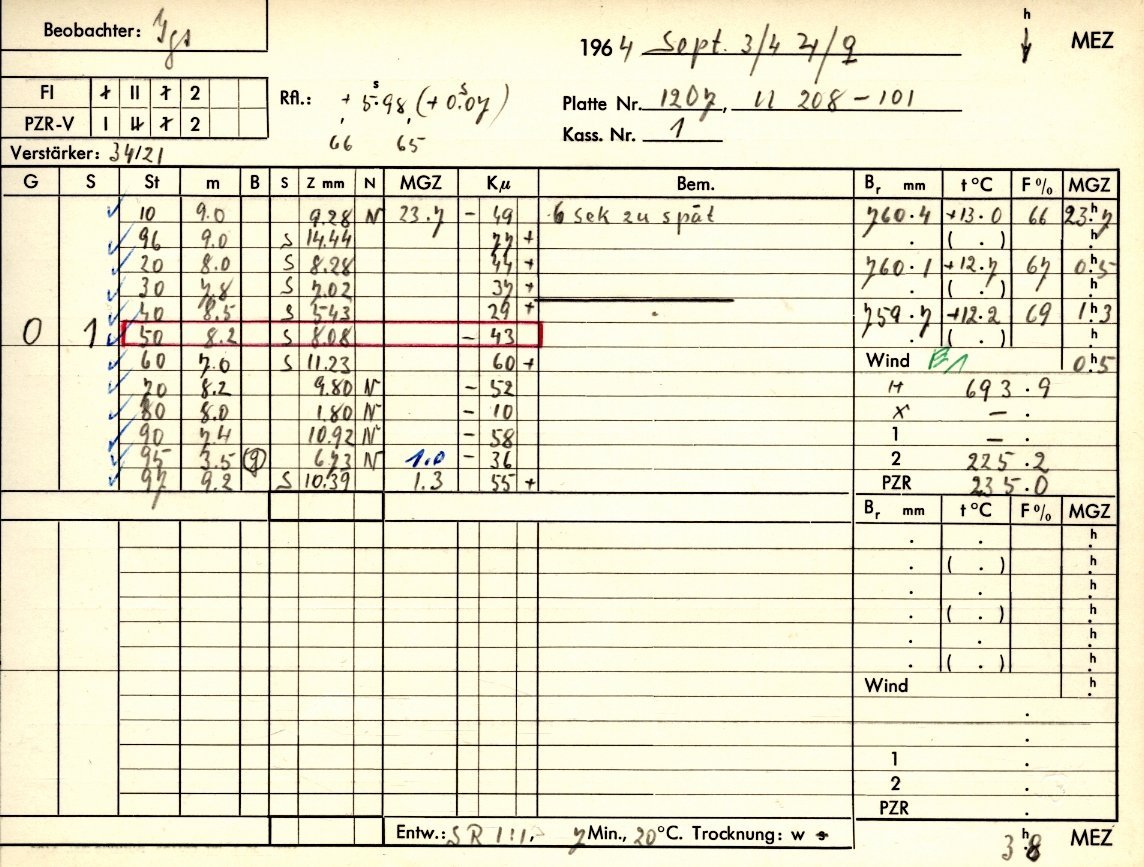 Beobachter: Jgs
1964 Sept. 3/4 4/9 h MEZ
FI 1 II 1 2
PZR-V 1 II 1 2
Rfl.: + 5.98 (+ 0.07) s s
66 65
Platte Nr. 1207, U 208-101
Kass. Nr. 1
Verstärker: 34/21
G S St m B S Z mm N MGZ Kμ Bem. Br mm t °C F % MGZ
10 9.0 9.28 N 23.7 - 49 6 sek zu spät 760.4 +13.0 66 23.h7
96 9.0 S 14.44 77 + . ( . ) h.
20 8.0 S 8.28 44 + 760.1 +12.7 67 0.h5
30 7.8 S 7.02 37 + . ( . ) h.
40 8.5 S 5.43 29 + 759.7 +12.2 69 1.h3
0 1 50 8.2 S 8.08 - 43 . ( . ) h.
60 7.0 S 11.23 60 + Wind 0.h5
70 8.2 9.80 N - 52 H 693.9
80 8.0 1.80 N - 10 X - .
90 7.4 10.92 N - 58 1 - .
95 3.5 (g) 6.73 N 1.0 - 36 2 225.2
97 9.2 S 10.39 1.3 55 + PZR 235.0
Br mm t °C F % MGZ
. . h.
. ( . ) h.
. . h.
. ( . ) h.
. . h.
. ( . ) h.
Wind h.
.
.
1 .
2 .
PZR .
Entw.: SR 1:1. 7 Min., 20°C. Trocknung: w s 3.h8 MEZ